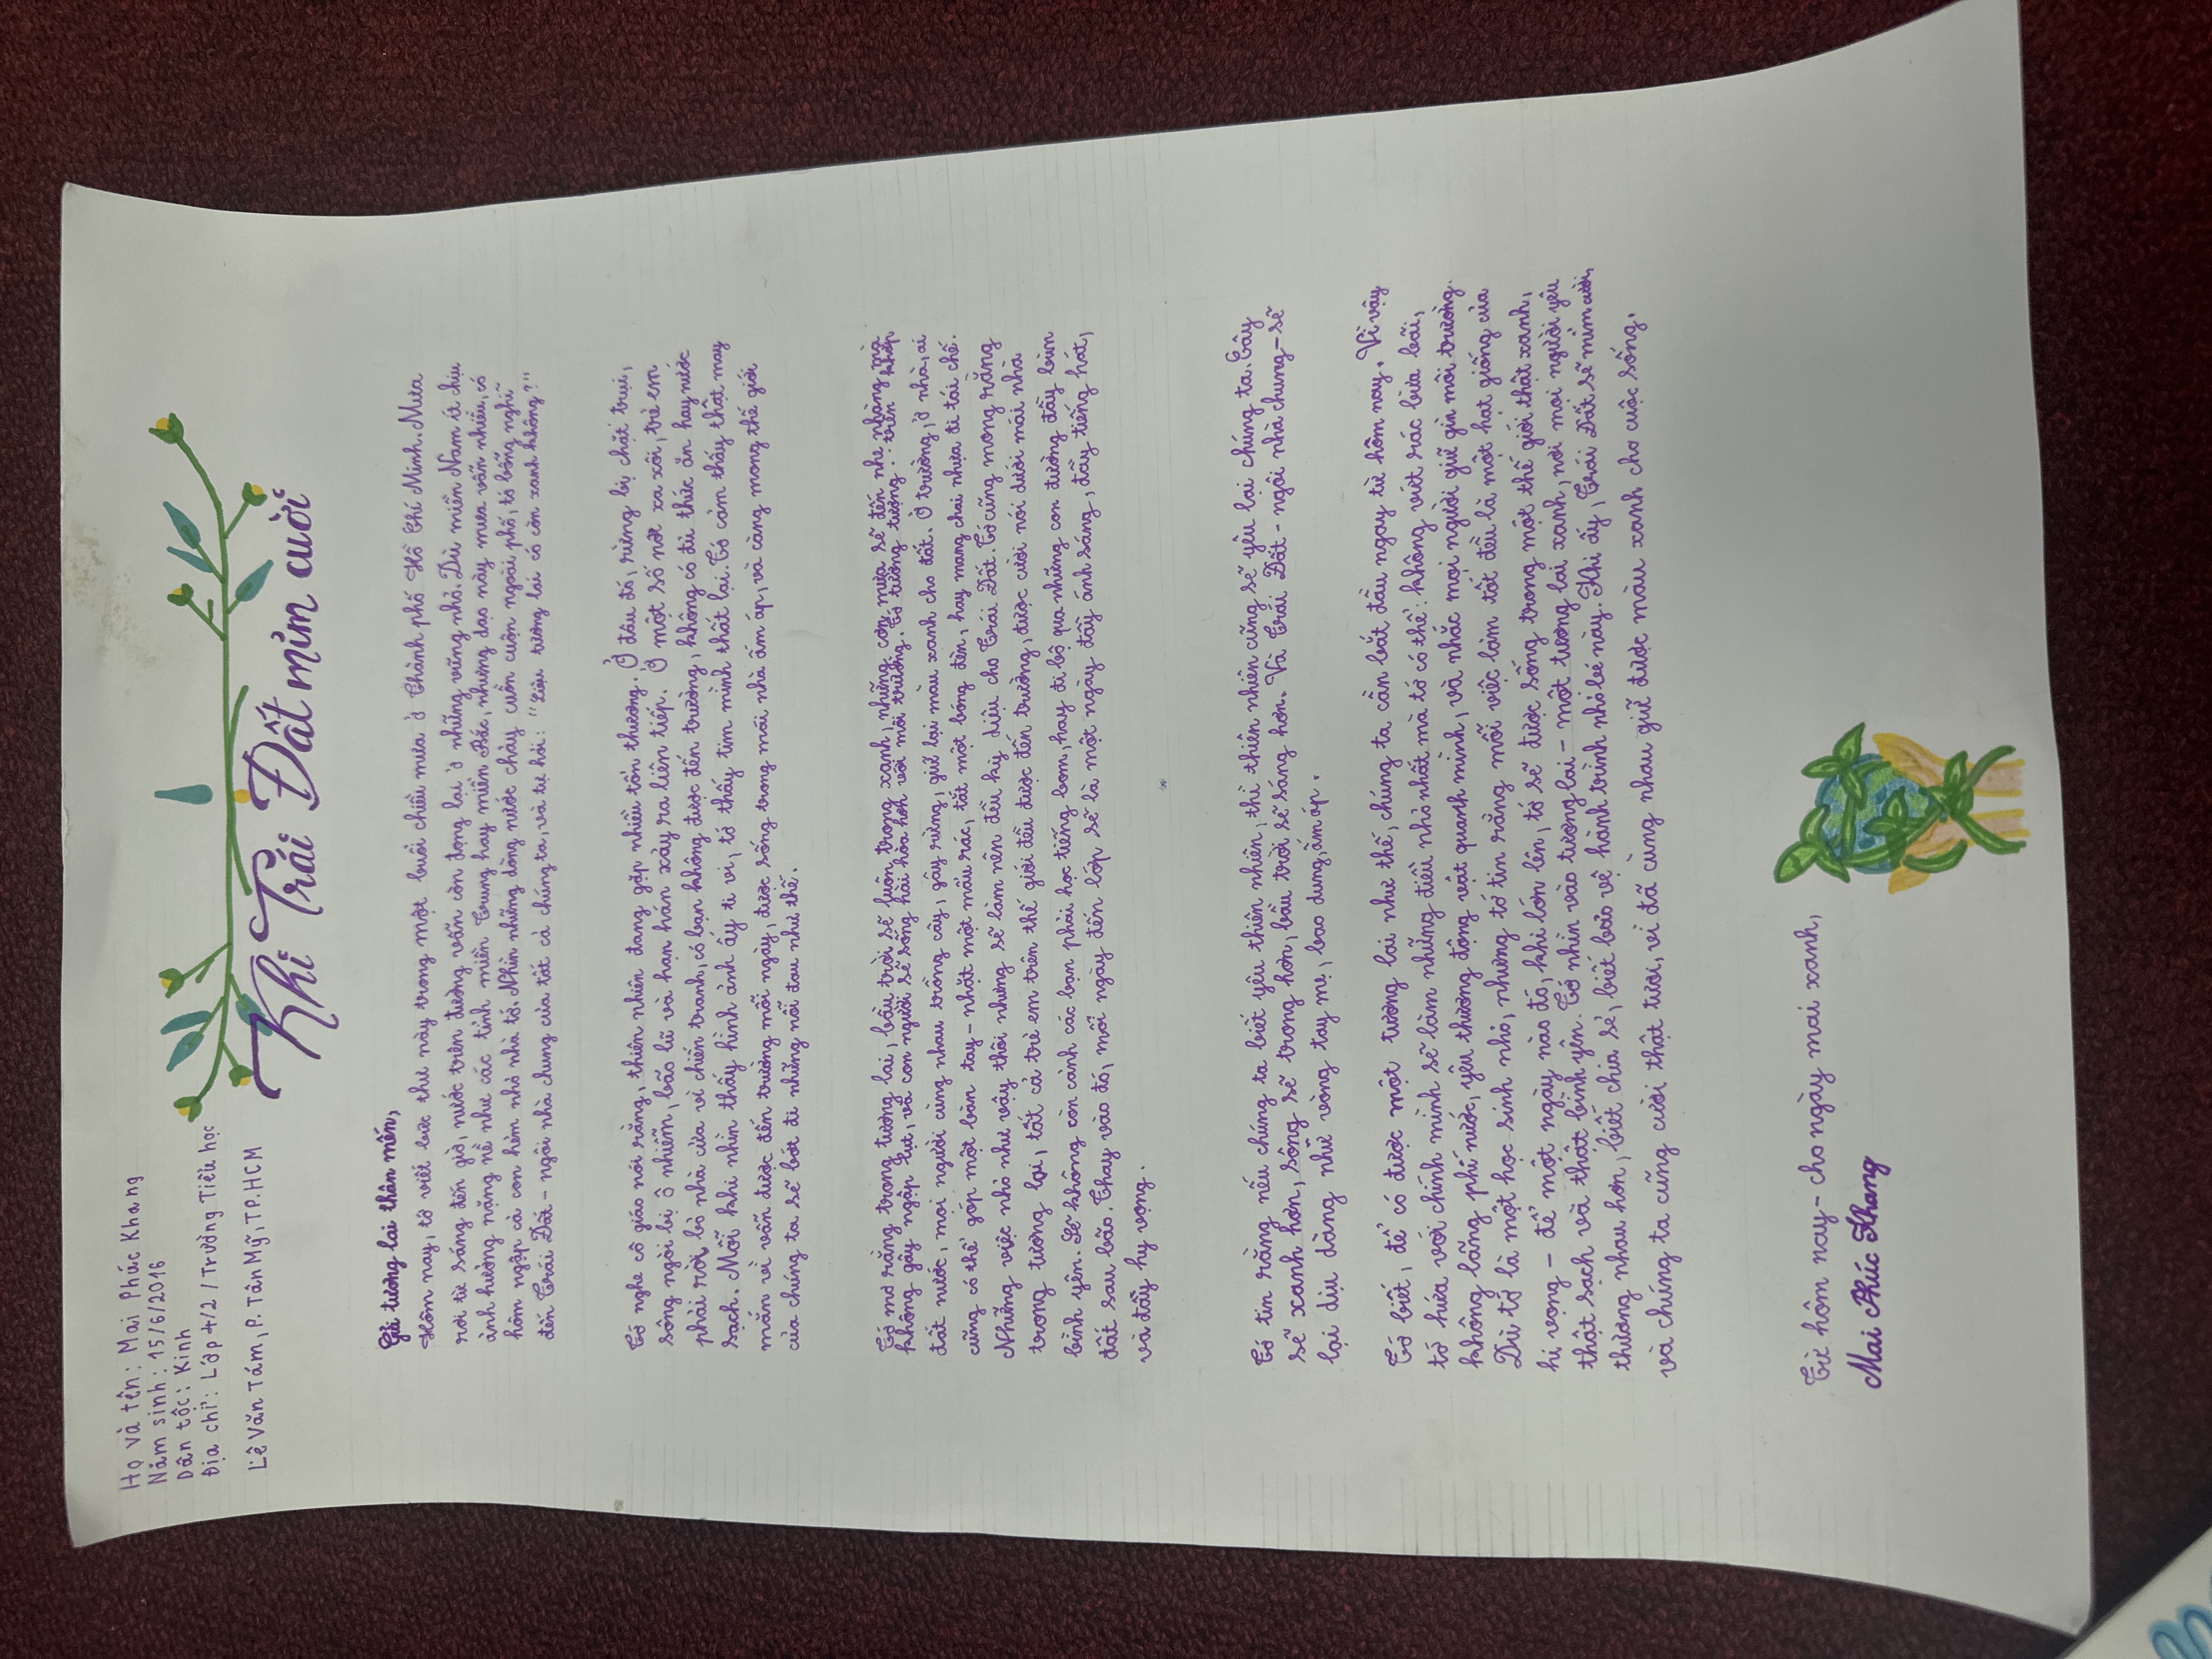 Họ và tên: Mai Phúc Khang
Năm sinh: 15/6/2016
Dân tộc: Kinh
Địa chỉ: Lớp 4/2 / Trường Tiểu học
Lê Văn Tám, P. Tân Mỹ, TP.HCM
Khi Trái Đất mỉm cười
Gửi tương lai thân mến,
Hôm nay, tớ viết bức thư này trong một buổi chiều mưa ở Thành phố Hồ Chí Minh. Mưa
rơi từ sáng đến giờ, nước trên đường vẫn còn đọng lại ở những vũng nhỏ. Dù miền Nam ít chịu
ảnh hưởng nặng nề như các tỉnh miền Trung hay miền Bắc, nhưng dạo này mưa vẫn nhiều, có
hôm ngập cả con hẻm nhỏ nhà tớ. Nhìn những dòng nước chảy cuồn cuộn ngoài phố, tớ bỗng nghĩ
đến Trái Đất - ngôi nhà chung của tất cả chúng ta, và tự hỏi: "Liệu tương lai có còn xanh không?"
Tớ nghe cô giáo nói rằng, thiên nhiên đang gặp nhiều tổn thương. Ở đâu đó, rừng bị chặt trụi,
sông ngòi bị ô nhiễm, bão lũ và hạn hán xảy ra liên tiếp. Ở một số nơi xa xôi, trẻ em
phải rời bỏ nhà cửa vì chiến tranh, có bạn không được đến trường, không có đủ thức ăn hay nước
sạch. Mỗi khi nhìn thấy hình ảnh ấy ti vi, tớ thấy tim mình thắt lại. Tớ cảm thấy thật may
mắn vì vẫn được đến trường mỗi ngày, được sống trong mái nhà ấm áp, và càng mong thế giới
của chúng ta sẽ bớt đi những nỗi đau như thế.
Tớ mơ rằng trong tương lai, bầu trời sẽ luôn trong xanh, những cơn mưa sẽ đến nhẹ nhàng mà
không gây ngập lụt, và con người sẽ sống hài hòa hơn với môi trường. Tớ tưởng tượng... trên khắp
đất nước, mọi người cùng nhau trồng cây, gây rừng, giữ lại màu xanh cho đất. Ở trường, ở nhà, ai
cũng có thể góp một bàn tay - nhặt một mẩu rác, tắt một bóng đèn, hay mang chai nhựa đi tái chế.
Những việc nhỏ như vậy thôi nhưng sẽ làm nên điều kỳ diệu cho Trái Đất. Tớ cũng mong rằng
trong tương lai, tất cả trẻ em trên thế giới đều được đến trường, được cười nói dưới mái nhà
bình yên. Sẽ không còn cảnh các bạn phải học tiếng bom, hay đi bộ qua những con đường đầy bùn
đất sau bão. Thay vào đó, mỗi ngày đến lớp sẽ là một ngày đầy ánh sáng, đầy tiếng hát,
và đầy hy vọng.
Tớ tin rằng nếu chúng ta biết yêu thiên nhiên, thì thiên nhiên cũng sẽ yêu lại chúng ta. Cây
sẽ xanh hơn, sông sẽ trong hơn, bầu trời sẽ sáng hơn. Và Trái Đất - ngôi nhà chung - sẽ
lại dịu dàng như vòng tay mẹ, bao dung, ấm áp.
Tớ biết, để có được một tương lai như thế, chúng ta cần bắt đầu ngay từ hôm nay. Vì vậy
tớ hứa với chính mình sẽ làm những điều nhỏ nhất mà tớ có thể: không vứt rác bừa bãi,
không lãng phí nước, yêu thương động vật quanh mình, và nhắc mọi người giữ gìn môi trường.
Dù tớ là một học sinh nhỏ, nhưng tớ tin rằng mỗi việc làm tốt đều là một hạt giống của
hi vọng - để một ngày nào đó, khi lớn lên, tớ sẽ được sống trong một thế giới thật xanh,
thật sạch và thật bình yên. Tớ nhìn vào tương lai - một tương lai xanh, nơi mọi người yêu
thương nhau hơn, biết chia sẻ, biết bảo vệ hành trình nhỏ bé này. Khi ấy, Trái Đất sẽ mỉm cười,
và chúng ta cũng cười thật tươi, vì đã cùng nhau giữ được màu xanh cho cuộc sống.
Từ hôm nay - cho ngày mai xanh,
Mai Phúc Khang